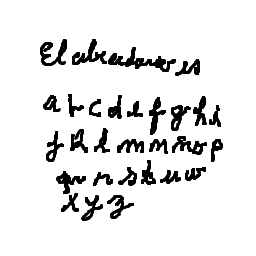 El abecedario es
a b c d e f g h i
j k l m n ñ o p
q r s t u v
x y z